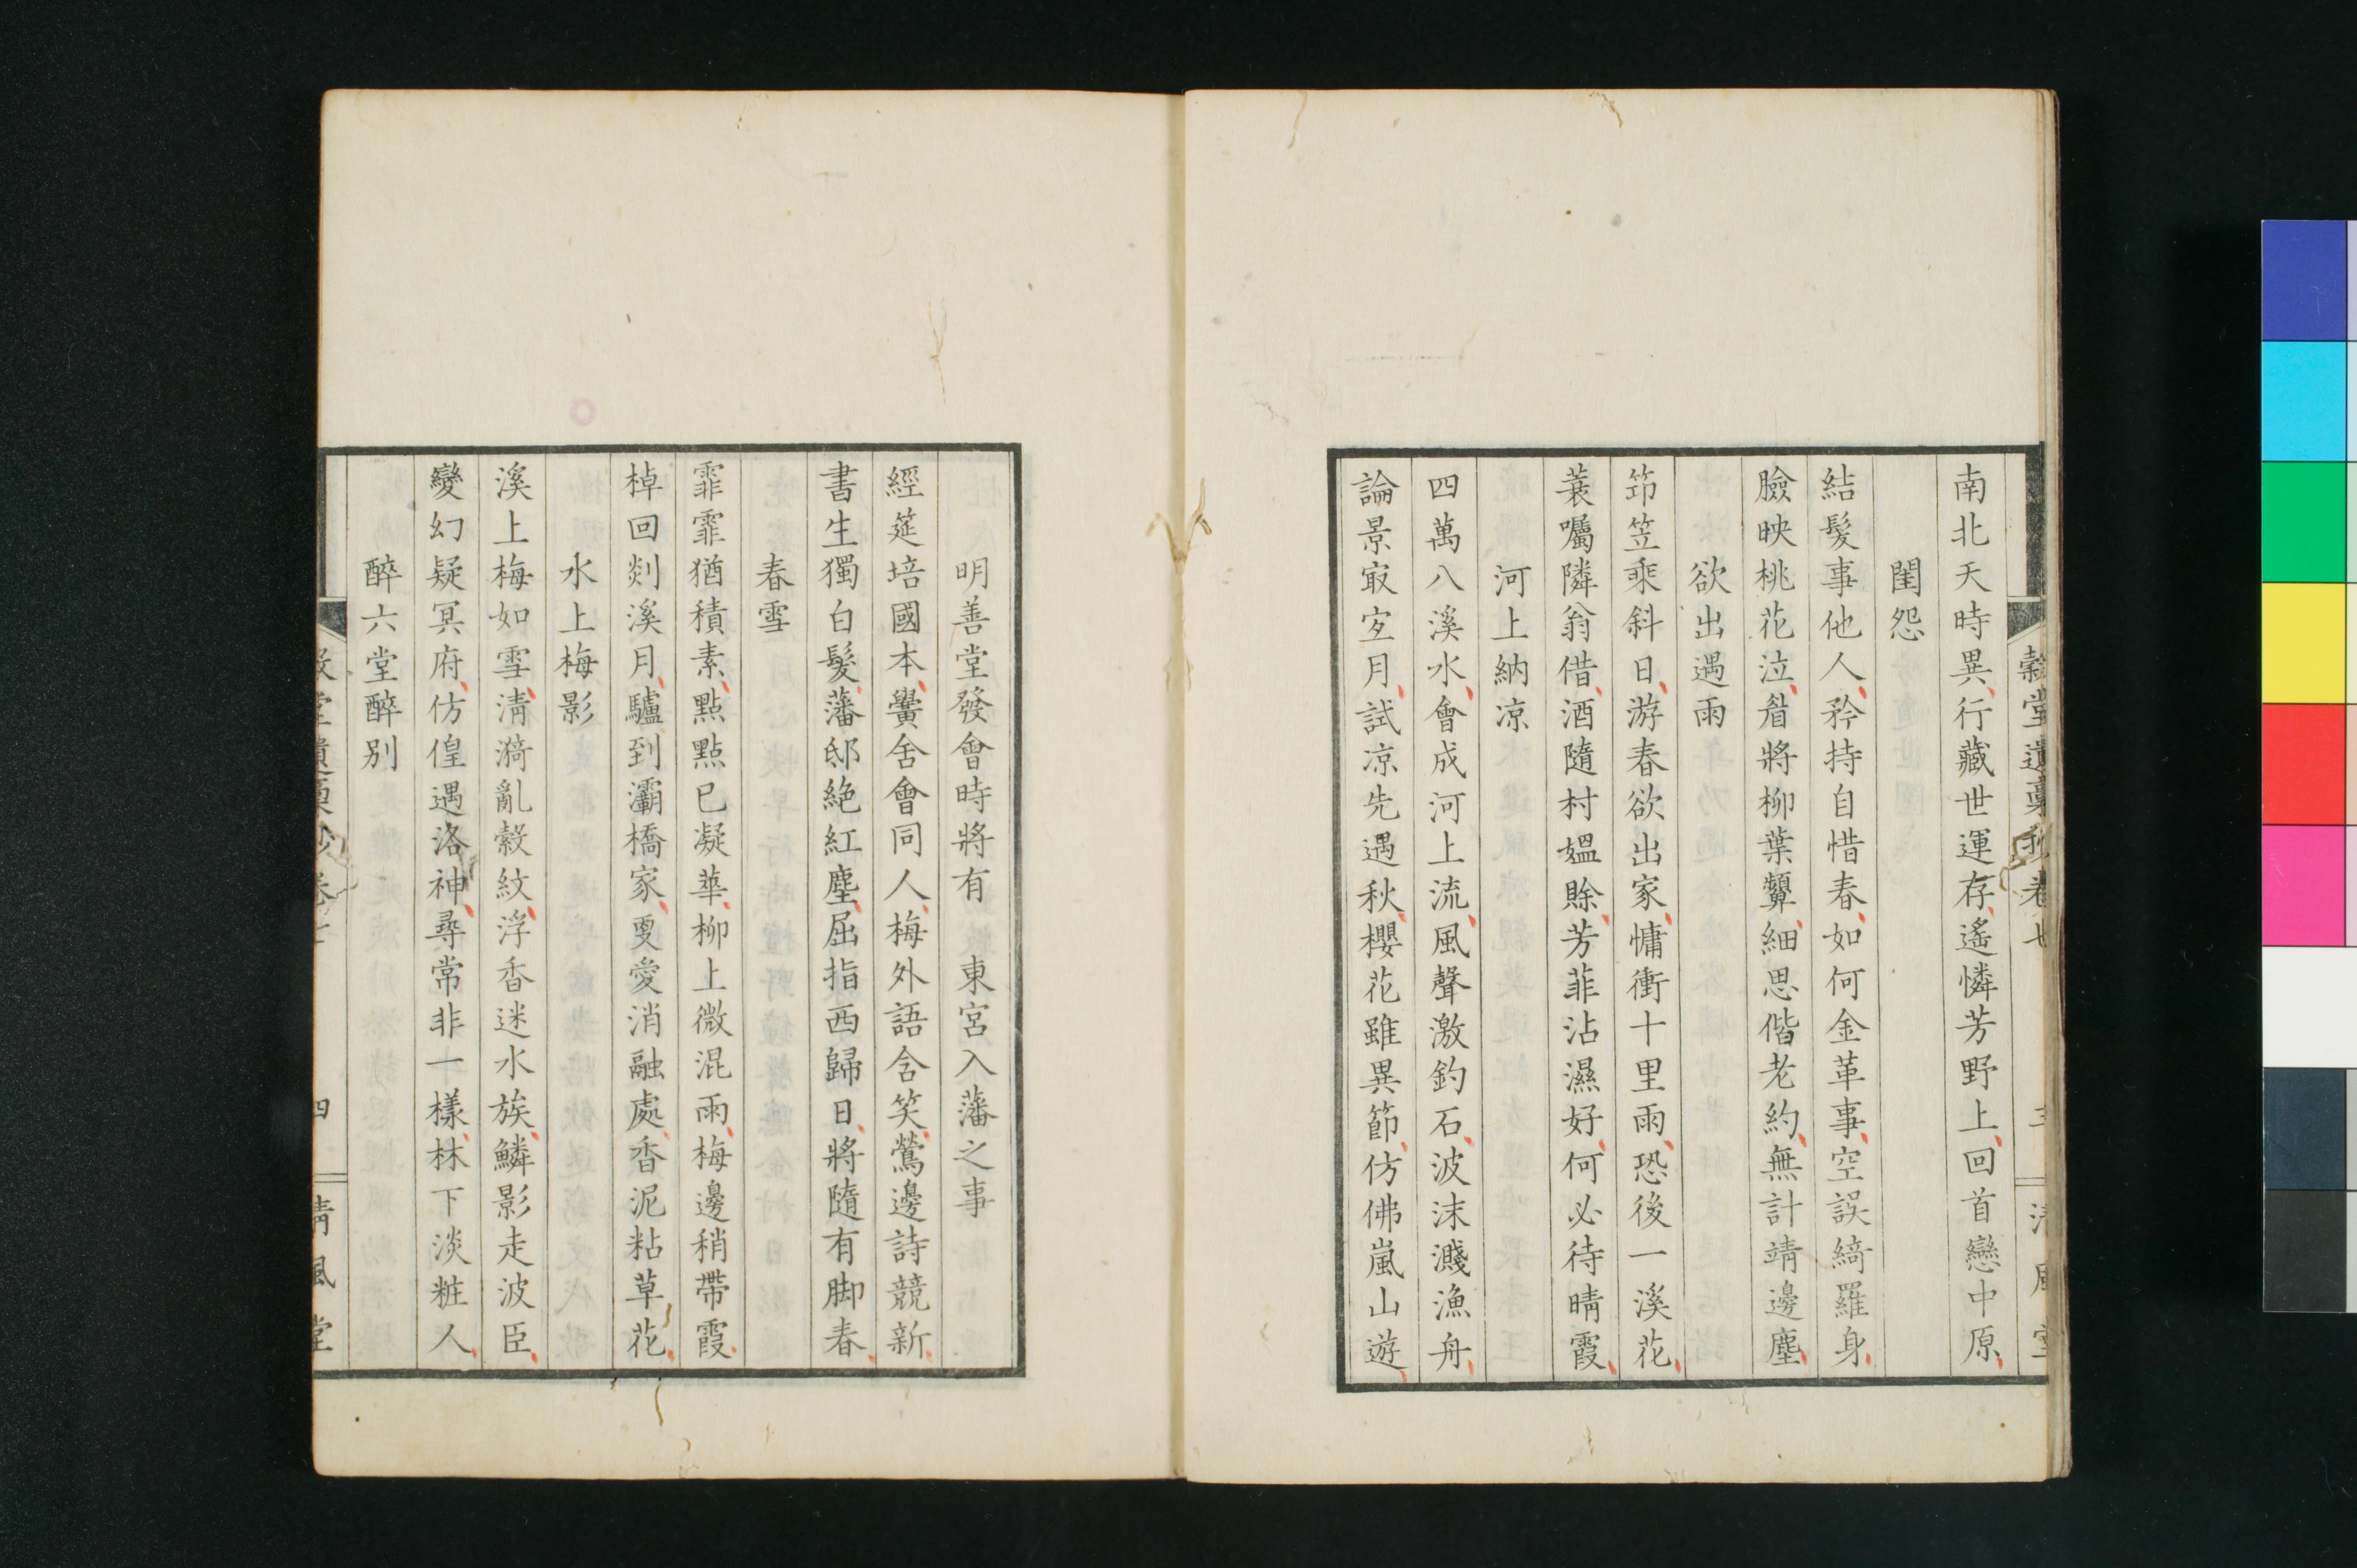 南北天時異行藏世運存遙憐芳野上回首戀中原
閨怨
結髮事他人矜持自惜春如何金革事空誤綺羅身
臉映桃花泣眉將柳葉顰細思偕老約無計靖邊塵
欲出遇雨
笻笠乘斜日游春欲出家慵衝十里雨恐後一溪花
蓑囑隣翁借酒隨村媼賖芳菲沾濕好何必待晴霞
河上納凉
四萬八溪水會成河上流風聲激釣石波沫濺漁舟
論景㝡宜月試凉先遇秋櫻花雖異節仿佛嵐山遊
穀堂遺稾抄卷七 三 清風堂
明善堂發會時將有 東宮入藩之事
經筵培國本黌舍會同人梅外語含笑鶯邊詩競新
書生獨白髮藩邸絶紅塵屈指西歸日將隨有脚春
春雪
霏霏猶積素點點已凝華柳上微混雨梅邊稍帶霞
棹回剡溪月驢到灞橋家更愛消融處香泥粘草花
水上梅影
溪上梅如雪清漪亂縠紋浮香迷水族鱗影走波臣
變幻疑冥府仿偟遇洛神尋常非一樣林下淡粧人
醉六堂醉別
四 清風堂